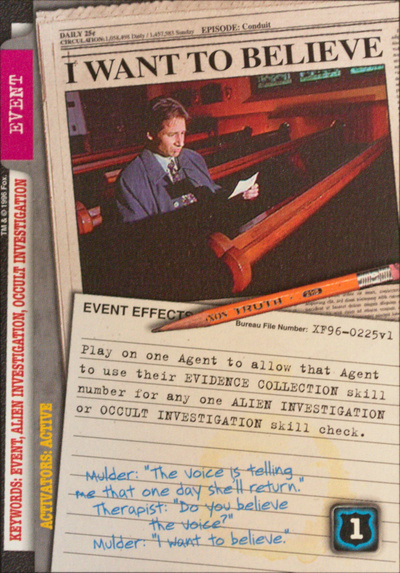 DAILY 25¢
EPISODE: Conduit
I WANT TO BELIEVE
EVENT
TM & © 1996 Fox.
KEYWORDS: EVENT, ALIEN INVESTIGATION, OCCULT INVESTIGATION
ACTIVATORS: ACTIVE
EVENT EFFECTS
TRUTH
Bureau File Number: XF96-0225v1
Play on one Agent to allow that Agent
to use their EVIDENCE COLLECTION skill
number for any one ALIEN INVESTIGATION
or OCCULT INVESTIGATION skill check.
Mulder: "The voice is telling
me that one day she'll return."
Therapist: "Do you believe
the voice?"
Mulder: "I want to believe."
1